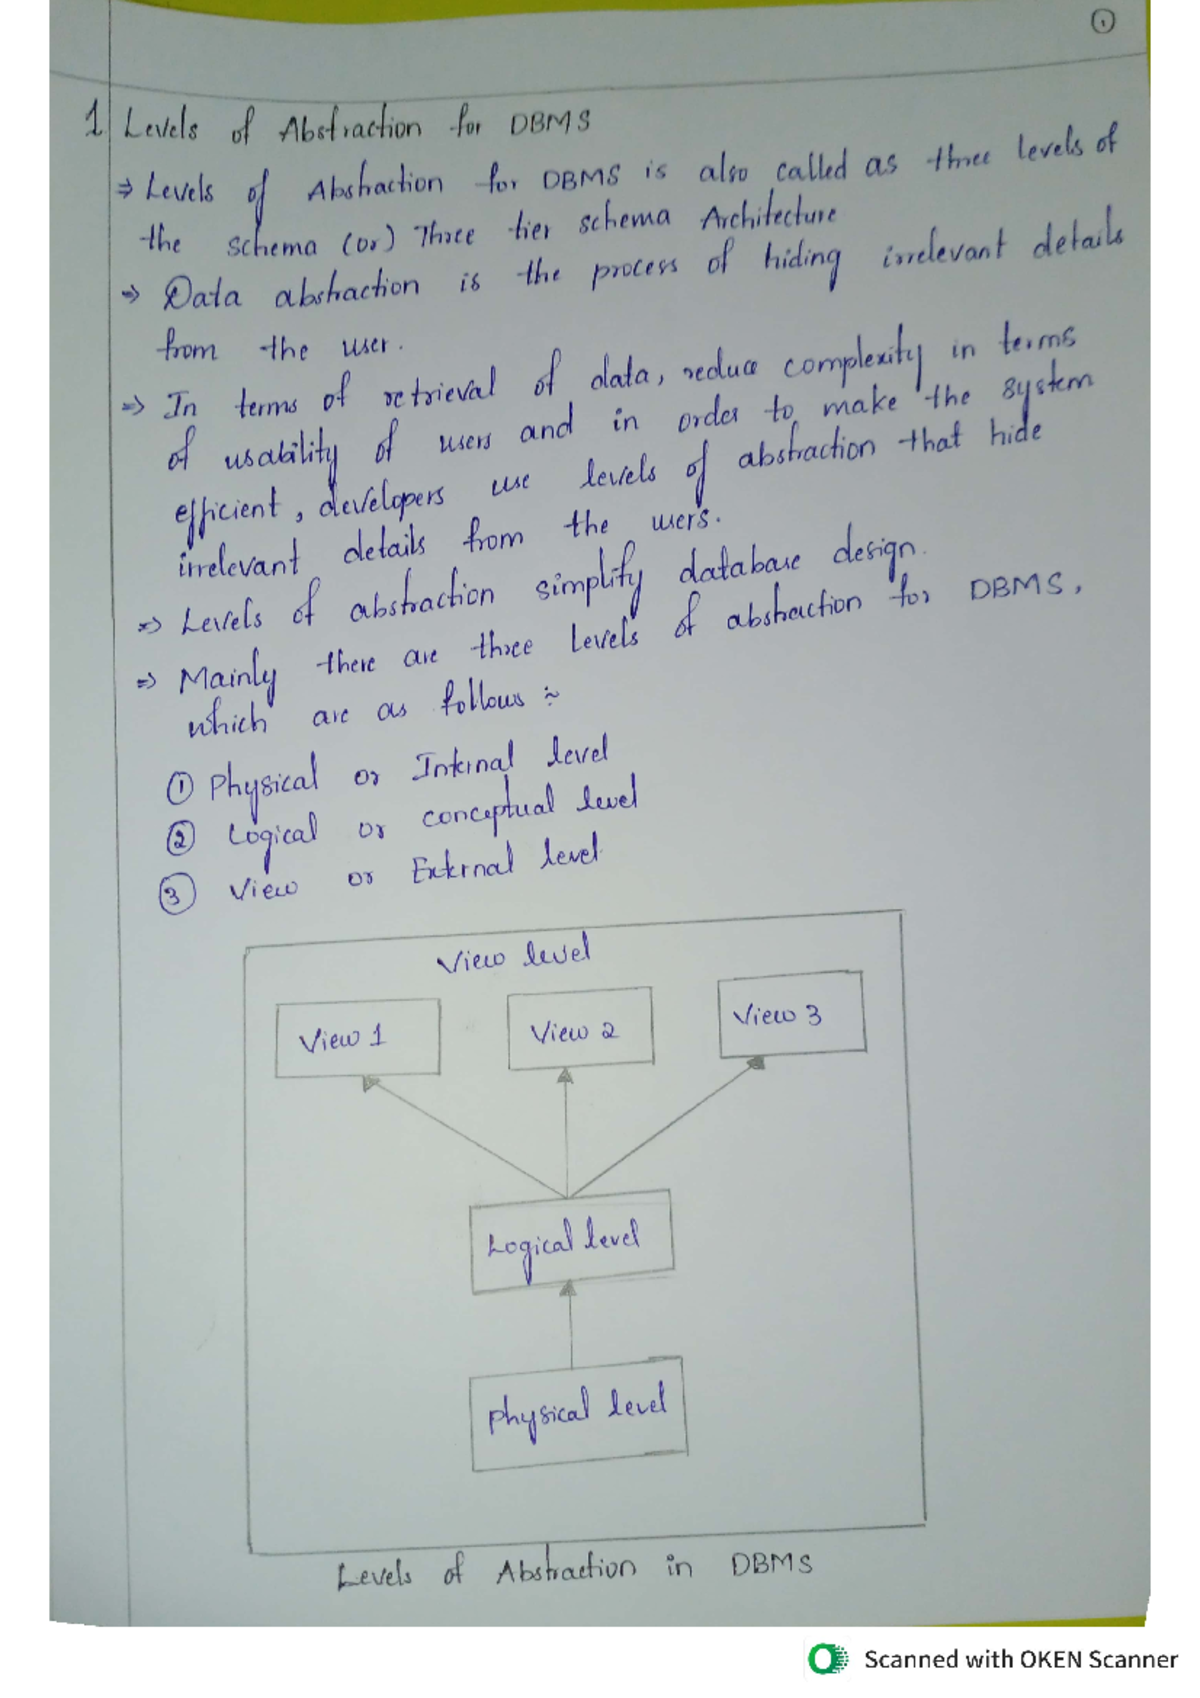 ①
1 Levels of Abstraction for DBMS
⇒ Levels of Abstraction for DBMS is also called as three levels of
the schema (or) Three tier schema Architecture
⇒ Data abstraction is the process of hiding irrelevant details
from the user.
⇒ In terms of retrieval of data, reduce complexity in terms
of usability of users and in order to make the system
efficient, developers use levels of abstraction that hide
irrelevant details from the users.
⇒ Levels of abstraction simplify database design.
⇒ Mainly there are three levels of abstraction for DBMS,
which are as follows :-
① Physical or Internal level
② Logical or conceptual level
③ View or External level
View level
View 1 View 2 View 3
Logical level
physical level
Levels of Abstraction in DBMS
Scanned with OKEN Scanner